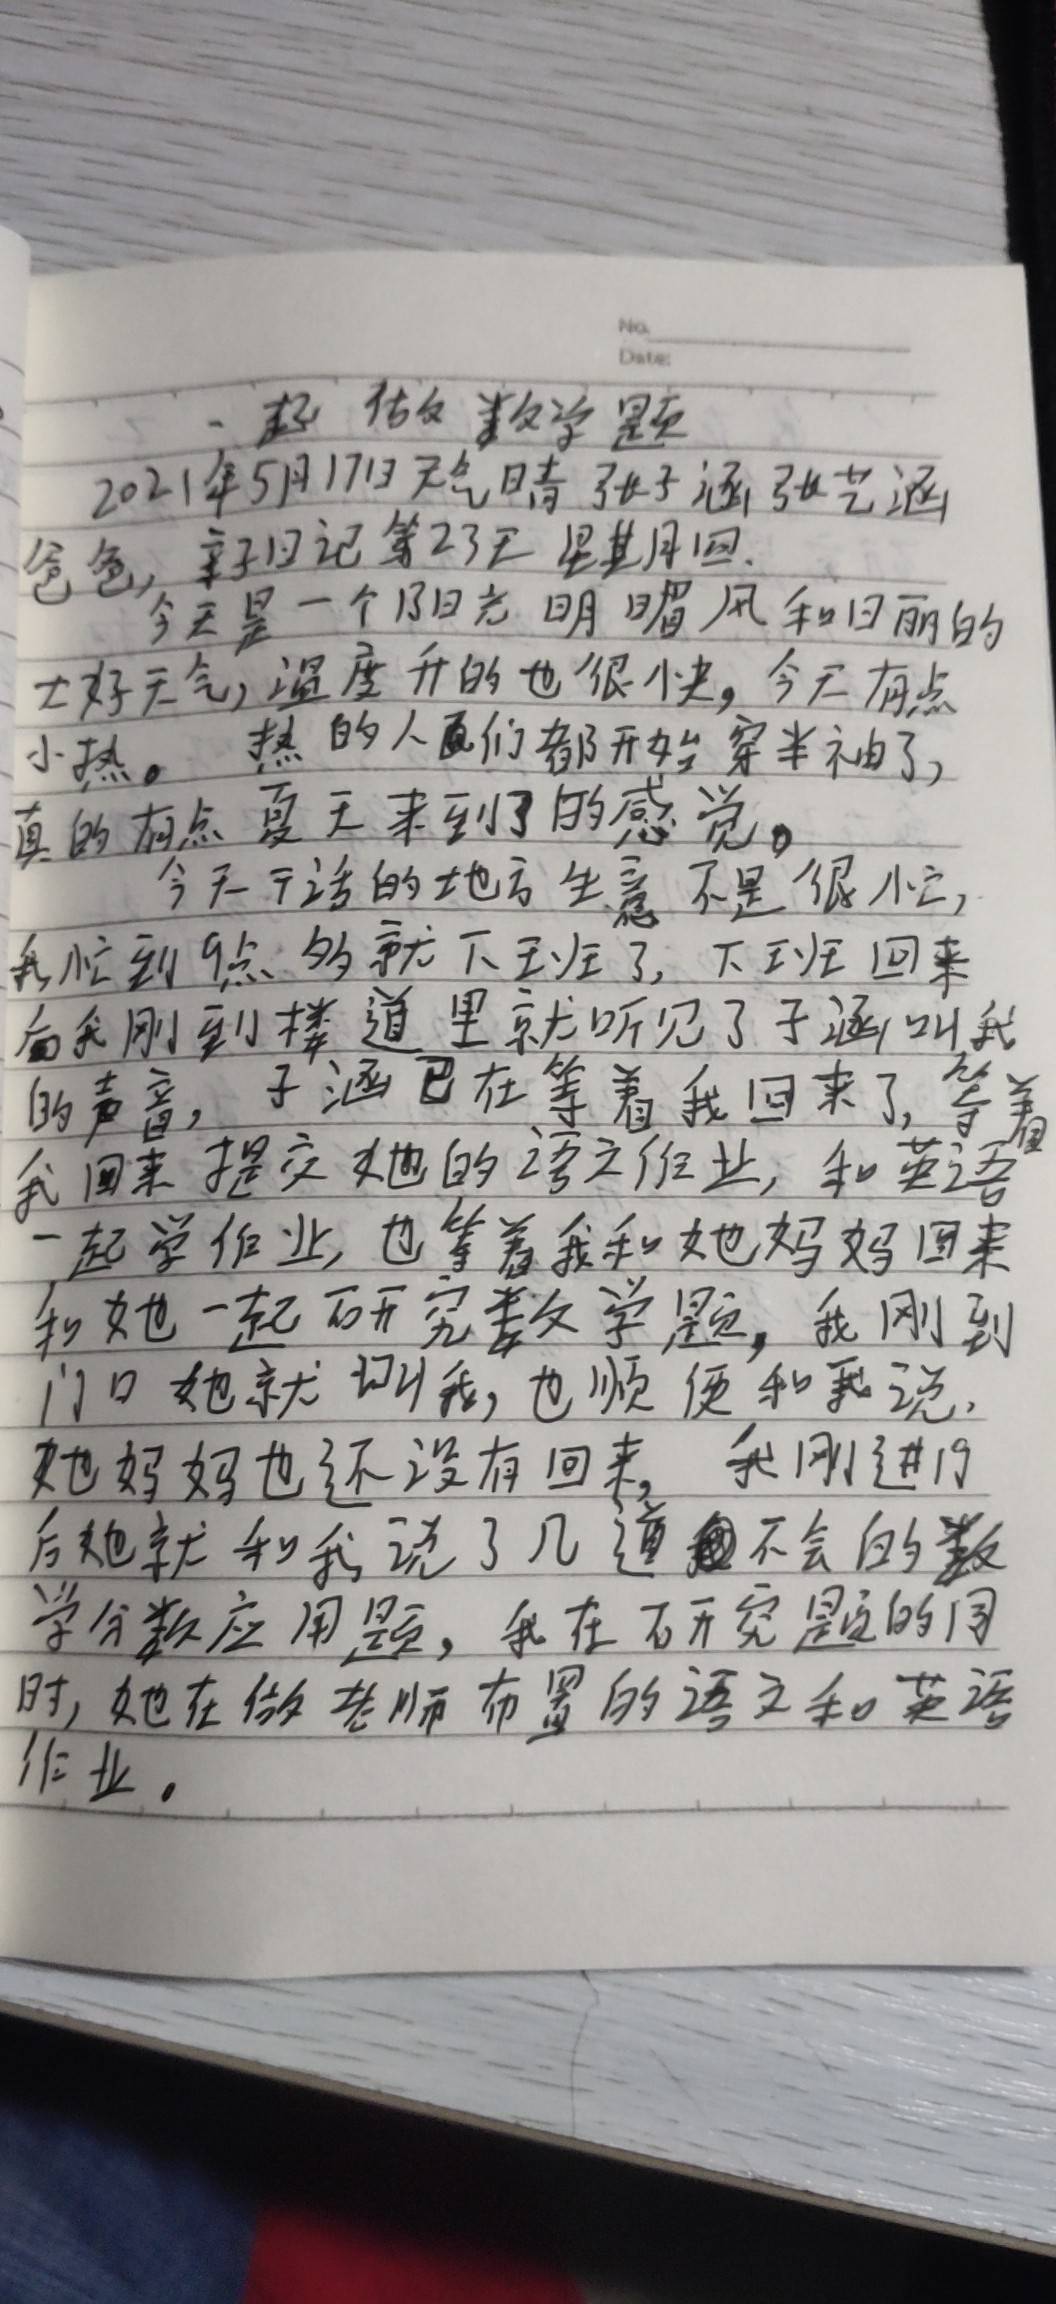 No.
Date:
一起做数学题
2021年5月17日天气晴 张子涵张艺涵
爸爸，亲子日记第23天 星期四.
今天是一个阳光明媚风和日丽的
大好天气，温度升的也很快。今天有点
小热。热的人们都开始穿半袖了，
真的有点夏天来到了的感觉。
今天干活的地方生意不是很忙，
我忙到9点多就下班了，下班回来
后我刚到楼道里就听见了子涵叫我
的声音，子涵已在等着我回来了，等着
我回来提交她的语文作业，和英语
一起学作业，也等着我和她妈妈回来
和她一起研究数学题，我刚到
门口她就叫我，也顺便和我说.
她妈妈也还没有回来。我刚进门
后她就和我说了几道不会的数
学分数应用题，我在研究题的同
时，她在做老师布置的语文和英语
作业。